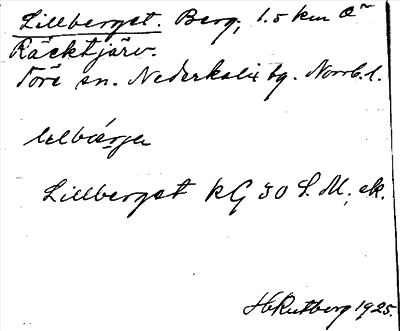 Lillberget. Berg, 1.5 km O
Räcktjärv.
Töre sn. Nederkalix tg. Norrb. l.
Lillberget kG 30 S.M., ek.
H Rutberg 1925.